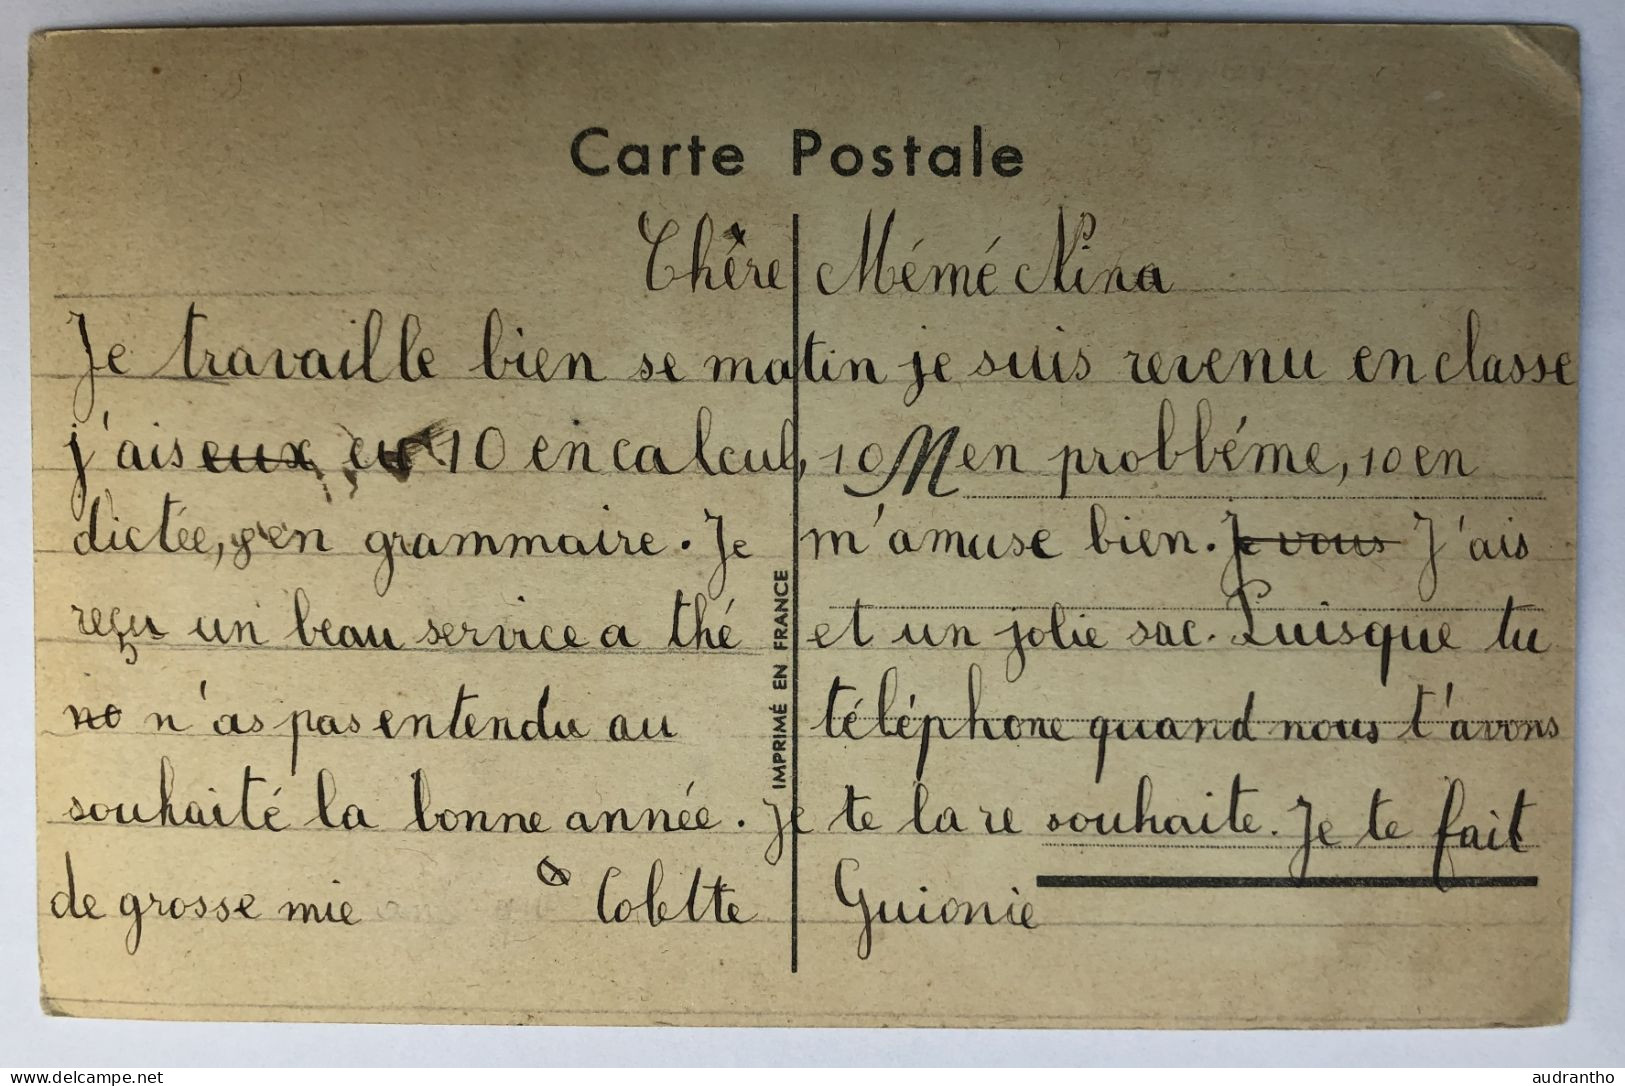 Carte Postale
Chère Mémé Nina
Je travaille bien se matin je suis revenu en classe
j'ais eux eu 10 en calcul, 10 M en probléme, 10 en
dictée, 8 en grammaire. Je m'amuse bien. Je vous J'ais
reçu un beau service a thé et un jolie sac. Puisque tu
no n'as pas entendu au téléphone quand nous t'avons
souhaité la bonne année. Je te la re souhaite. Je te fait
de grosse mie Colette Guionie
IMPRIMÉ EN FRANCE
delcampe.net
audrantho